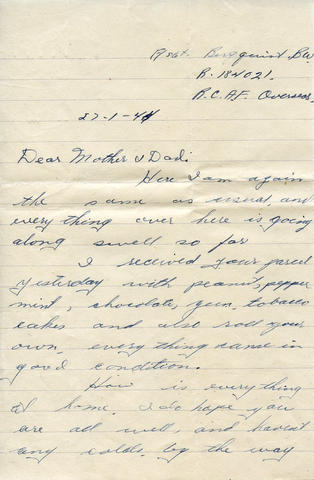 F/Sgt. Bergquist BW
R.184021.
R.C.A.F. Overseas.
27-1-44
Dear Mother & Dad:
Here I am again
the same as usual, and
every thing over here is going
along swell so far
I received your parcel
yesterday with peanuts, pepper
mint, chocolate, gum, tobacco
cakes and also roll your
own, every thing came in
good condition.
How is everything
at home. I do hope you
are all well, and havent
any colds, by the way